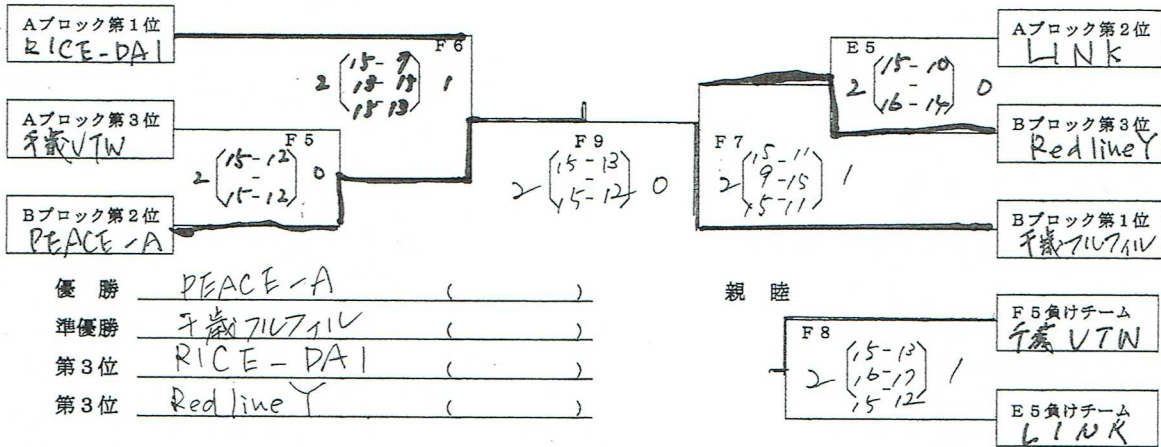 Aブロック第1位
RICE-DAI
Aブロック第3位
千歳VTW
Bブロック第2位
PEACE-A
F6
2 15-9 1
15 13
F5
2 15-12 0
-
15-12
F9
2 15-13 0
-
15-12
E5
2 15-10 0
-
16-14
F7
2 15-11 1
9-15
15-11
Aブロック第2位
LINK
Bブロック第3位
RedlineY
Bブロック第1位
千歳フルフィル
優勝 PEACE-A ( )
準優勝 千歳フルフィル ( )
第3位 RICE-DAI ( )
第3位 RedlineY ( )
親睦
F8
2 15-13 1
16-17
15 12
F5負けチーム
千歳VTW
E5負けチーム
LINK